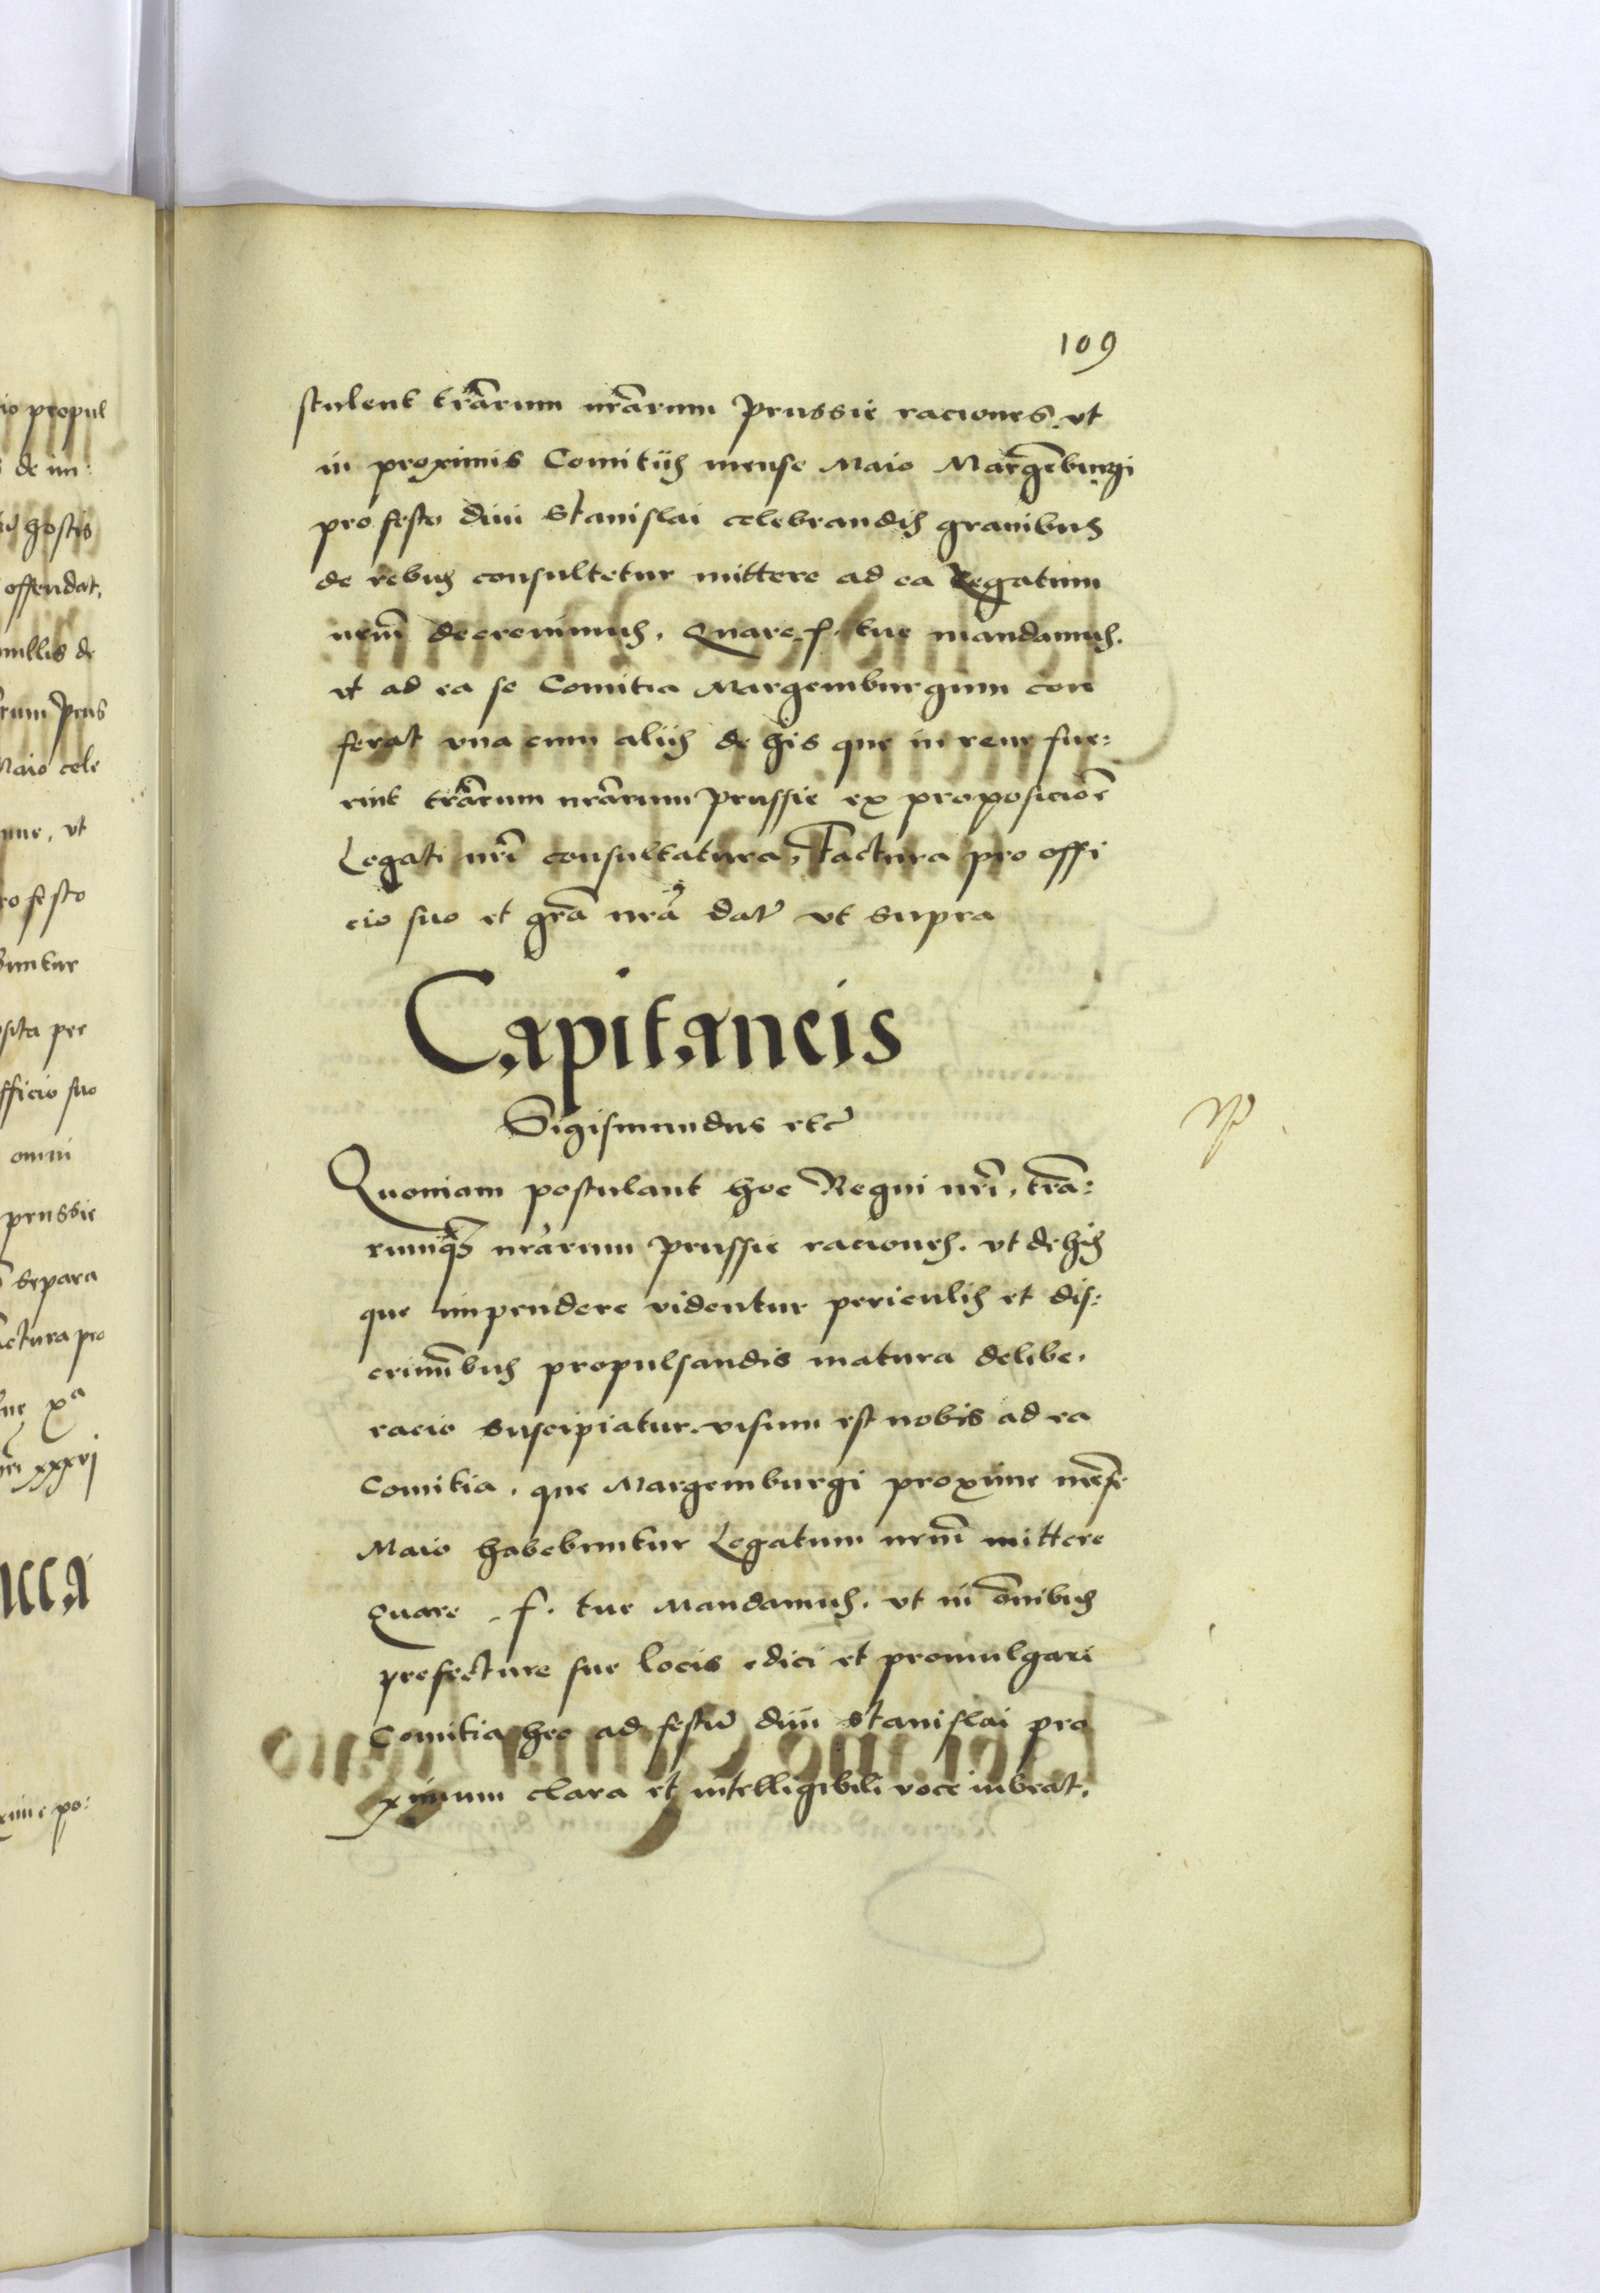 109
stulent trãrum nrãrum prussie raciones, vt
in proximis Comitiis mense Maio Margẽburgi
pro festo diui Stanislai celebrandis grauibus
de rebus consultetur mittere ad ea Legatum
nrm̃ decreuimus. Quare f. tue mandamus.
vt ad ea se Comitia Margemburgum con
ferat vna cum aliis de his que in rem fue:
rint trãrum nrãrum prussie ex proposiciõe
Legati nrĩ consultatura, Factura pro offi
cio suo et grã nrã dat̃ vt supra
Capitaneis
Sigismundus etc̃
Quoniam postulant hoc Regni nrĩ, trã:
rumq3 nrãrum prussie raciones. vt de his
que impendere videntur periculis et dis:
crimĩbus propulsandis matura delibe.
racio suscipiatur. visum est nobis ad ea
Comitia. que Margemburgi proxime mẽse
Maio habebuntur Legatum nrm̃ mittere
Quare . f. tue Mandamus. vt in õnibus
prefecture sue locis edici et promulgari
Comitia hec ad festũ diui Stanislai pro
ximum clara et intelligibili voce iubeat.
io propul
de im:
hostis
offendat,
nullis de
rum Prus
Maio cele
vt
ro festo
buntur
osita per
fficio suo
omni
prussie
separa
actura pro
xa
xxxvj
ucca
xime po: